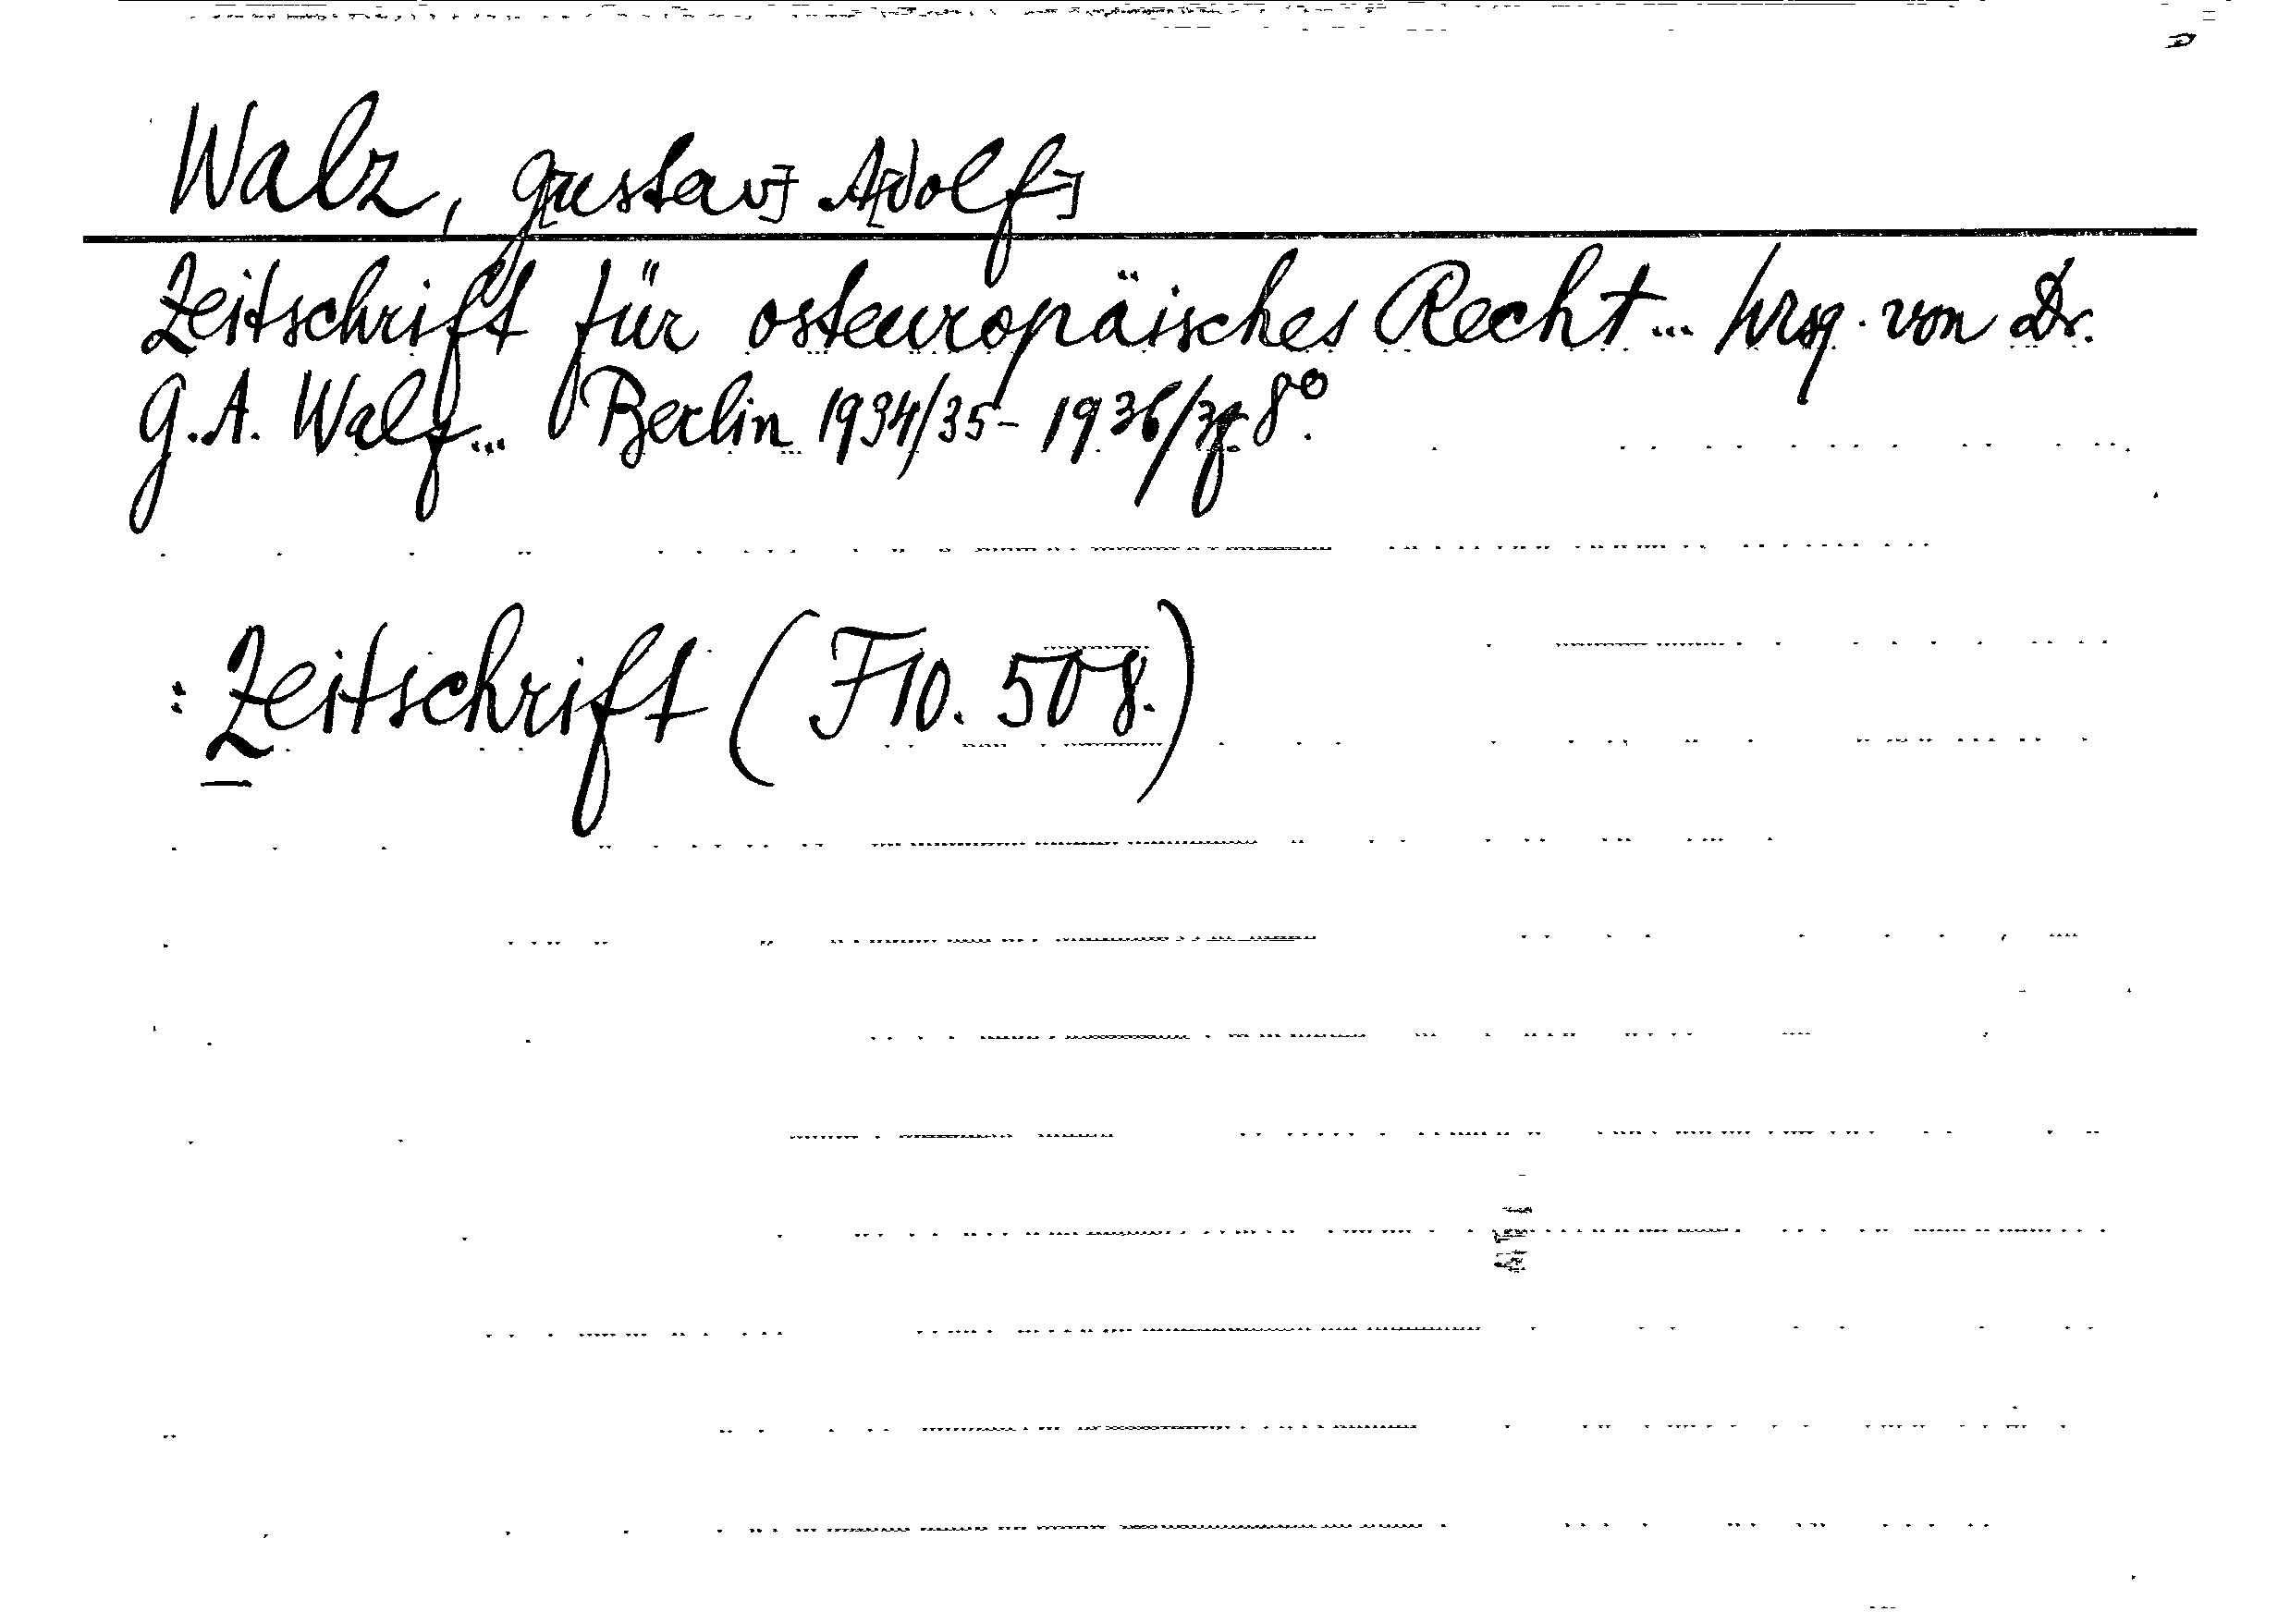 Walz, G[ustav] A[dolf]
Zeitschrift für osteuropäisches Recht... hrsg. von Dr.
G. A. Walz... Berlin 1934/35-1936/37. 8°.
: Zeitschrift (F10. 508.)